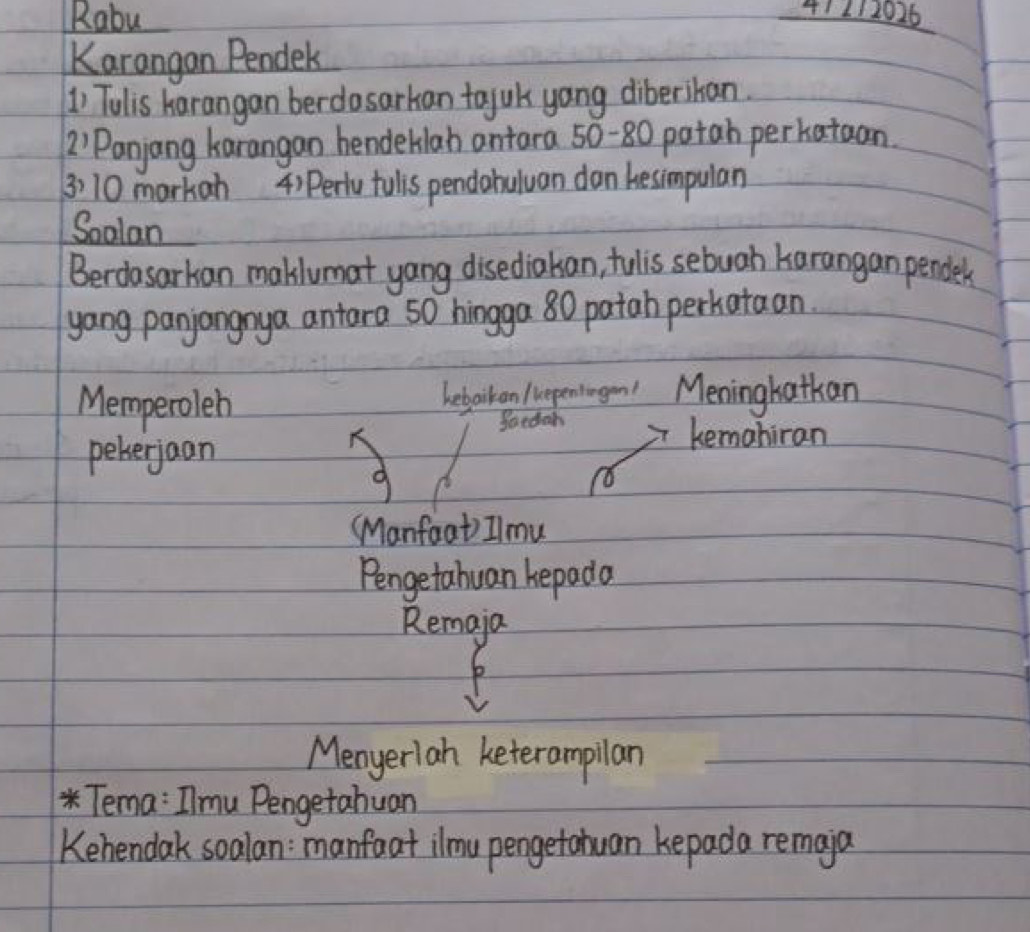 Rabu 4/2/2026
Karangan Pendek
1) Tulis karangan berdasarkan tajuk yang diberikan.
2) Panjang karangan hendeklah antara 50-80 patah perkataan.
3) 10 markah 4) Perlu tulis pendahuluan dan kesimpulan
Soalan
Berdasarkan maklumat yang disediakan, tulis sebuah karangan pendek
yang panjangnya antara 50 hingga 80 patah perkataan.
Memperoleh
pekerjaan
kebaikan/kepentingan/
faedah
Meningkatkan
kemahiran
(Manfaat) Ilmu
Pengetahuan kepada
Remaja
Menyerlah keterampilan
* Tema: Ilmu Pengetahuan
Kehendak soalan: manfaat ilmu pengetahuan kepada remaja